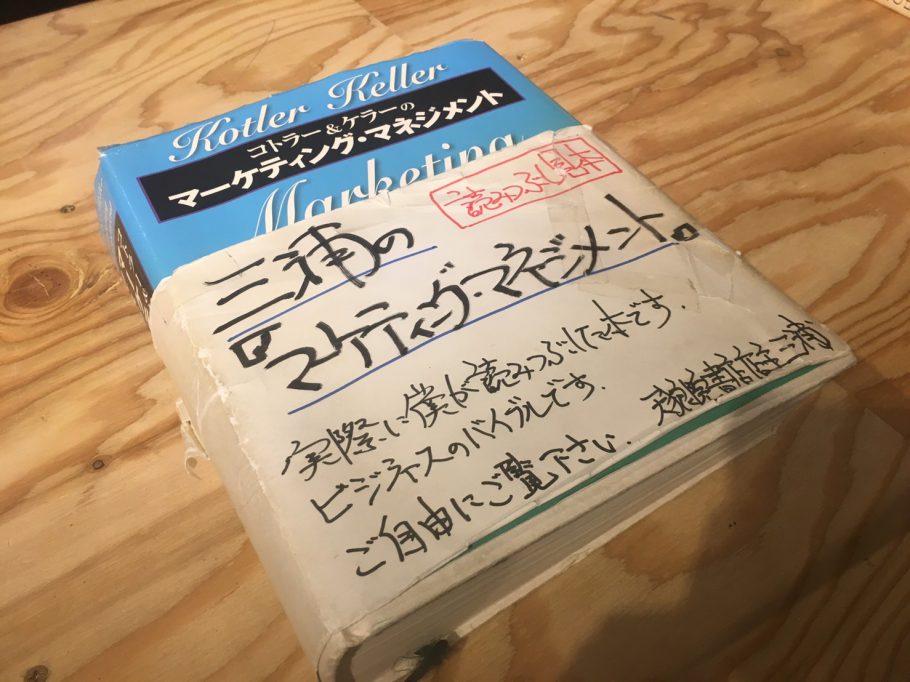 Kotler Keller
コトラー&ケラーの
マーケティング・マネジメント
Marketing
読みつぶし見本
三浦の
『マーケティング・マネジメント』
実際に僕が読みつぶした本です.
ビジネスのバイブルです.
ご自由にご覧下さい. 天狼院書店店主 三浦